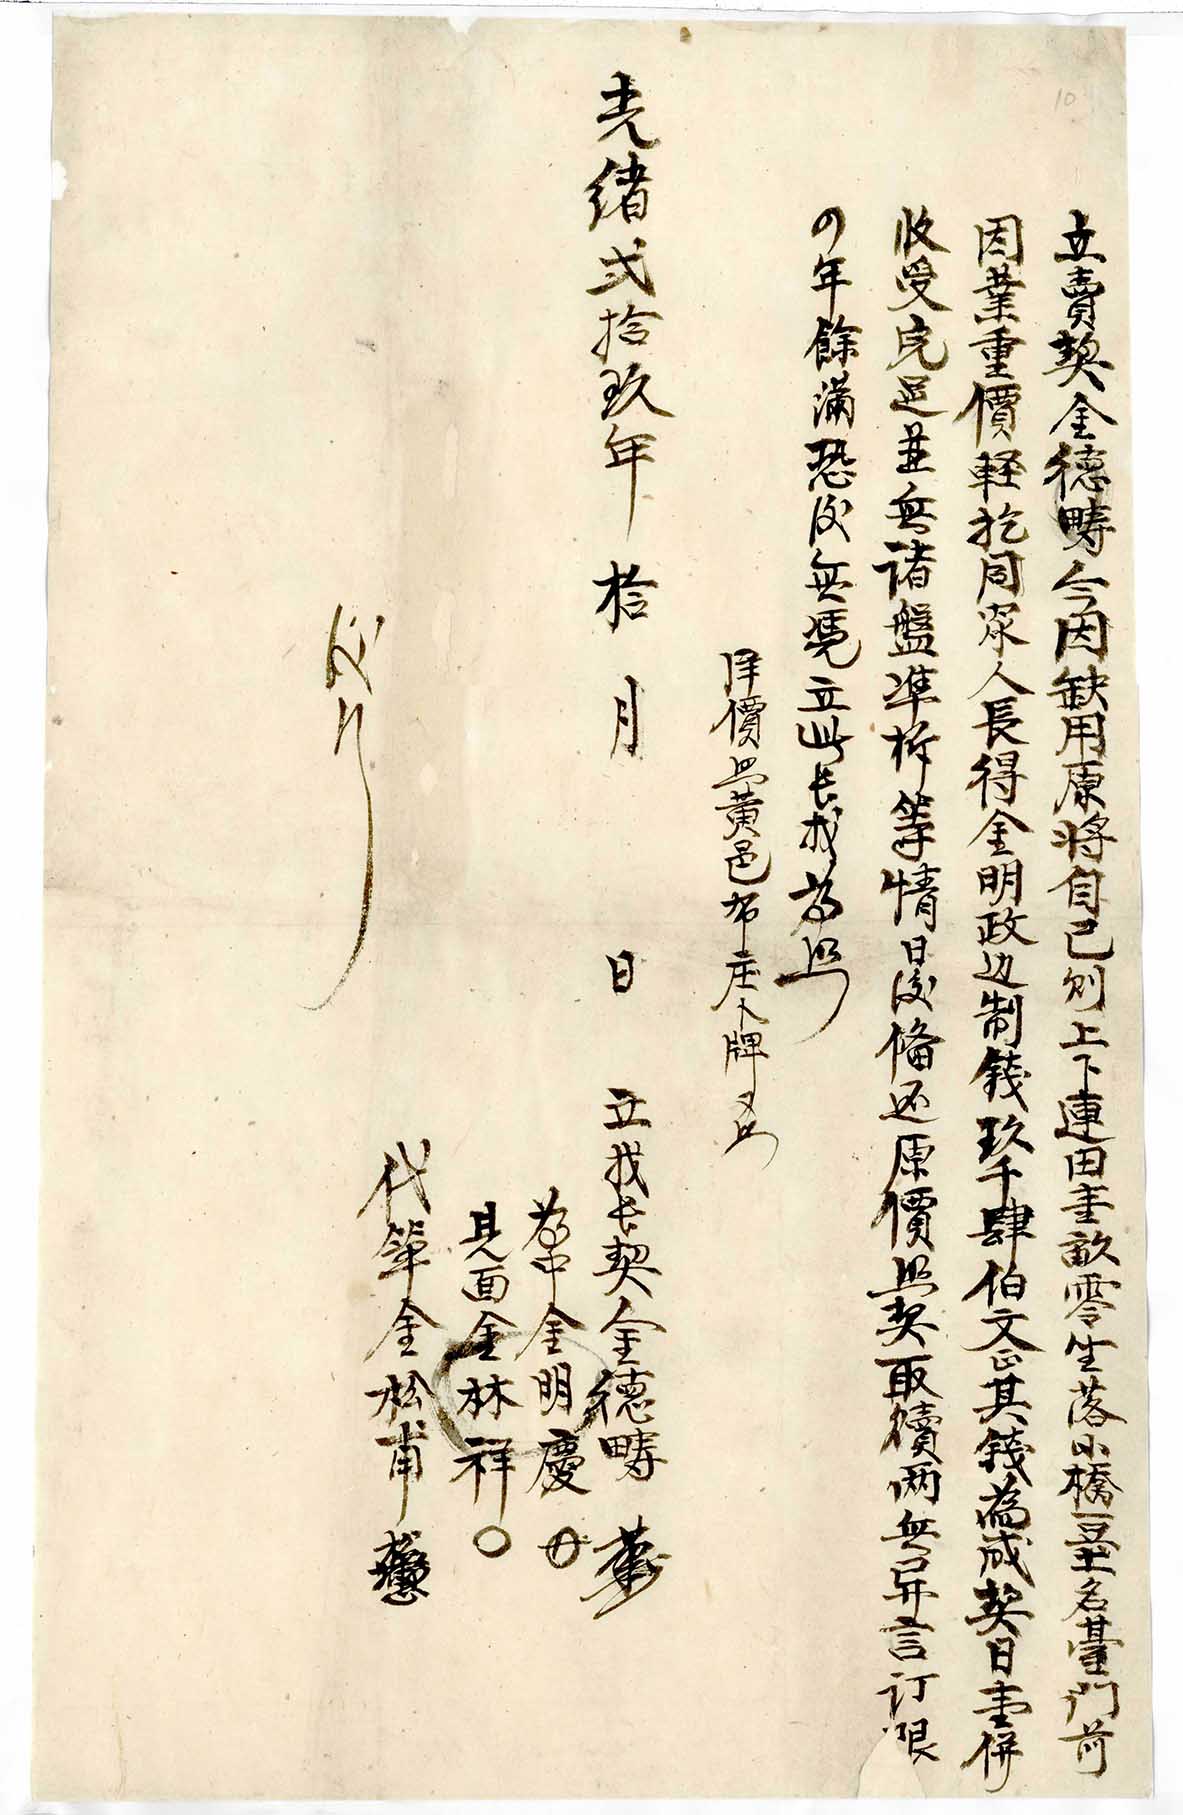 10
立賣契金德疇今因缺用原將自己則上下連田壹畝零坐落小橋里土名臺門前
因業重價輕挽同眾人長得金明政边制錢玖千肆伯文正其錢為成契日壹併
收受完足並無諸盤準折等情日後俻还原價照契取贖两無异言訂限
四年餘滿恐後無憑立此長找為照
洋價照黃邑布庄水牌又照
光緒弍拾玖年拾月 日 立找長契金德疇
為中金明慶
見面金林祥〇
代筆金松甫